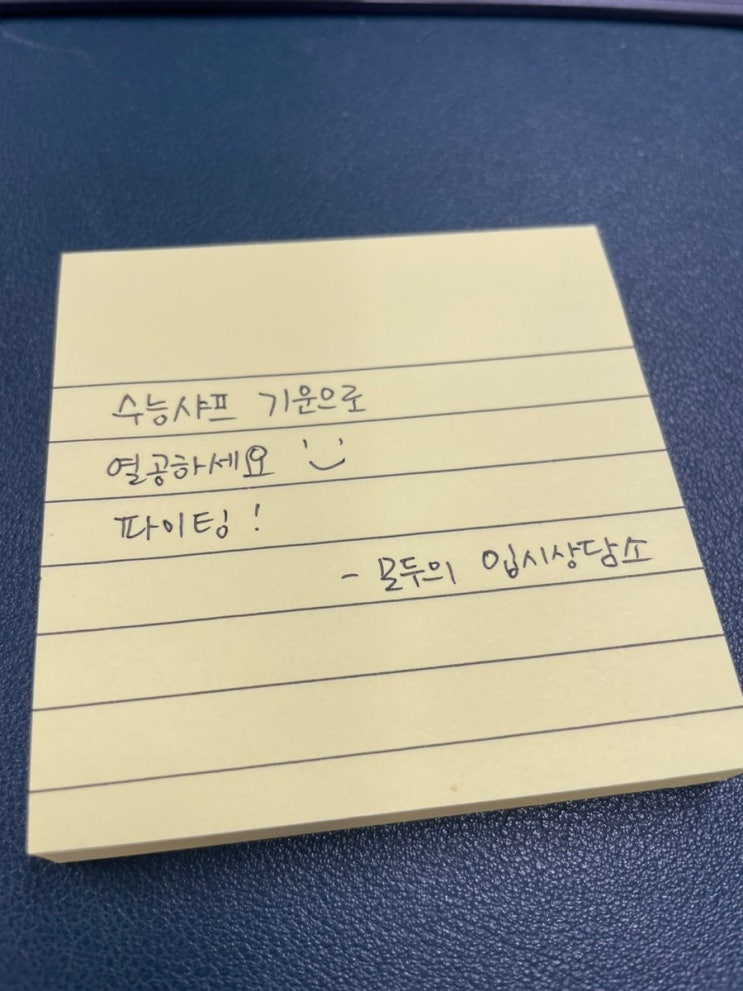 수능샤프 기운으로
열공하세요 :)
파이팅!
- 모두의 입시상담소